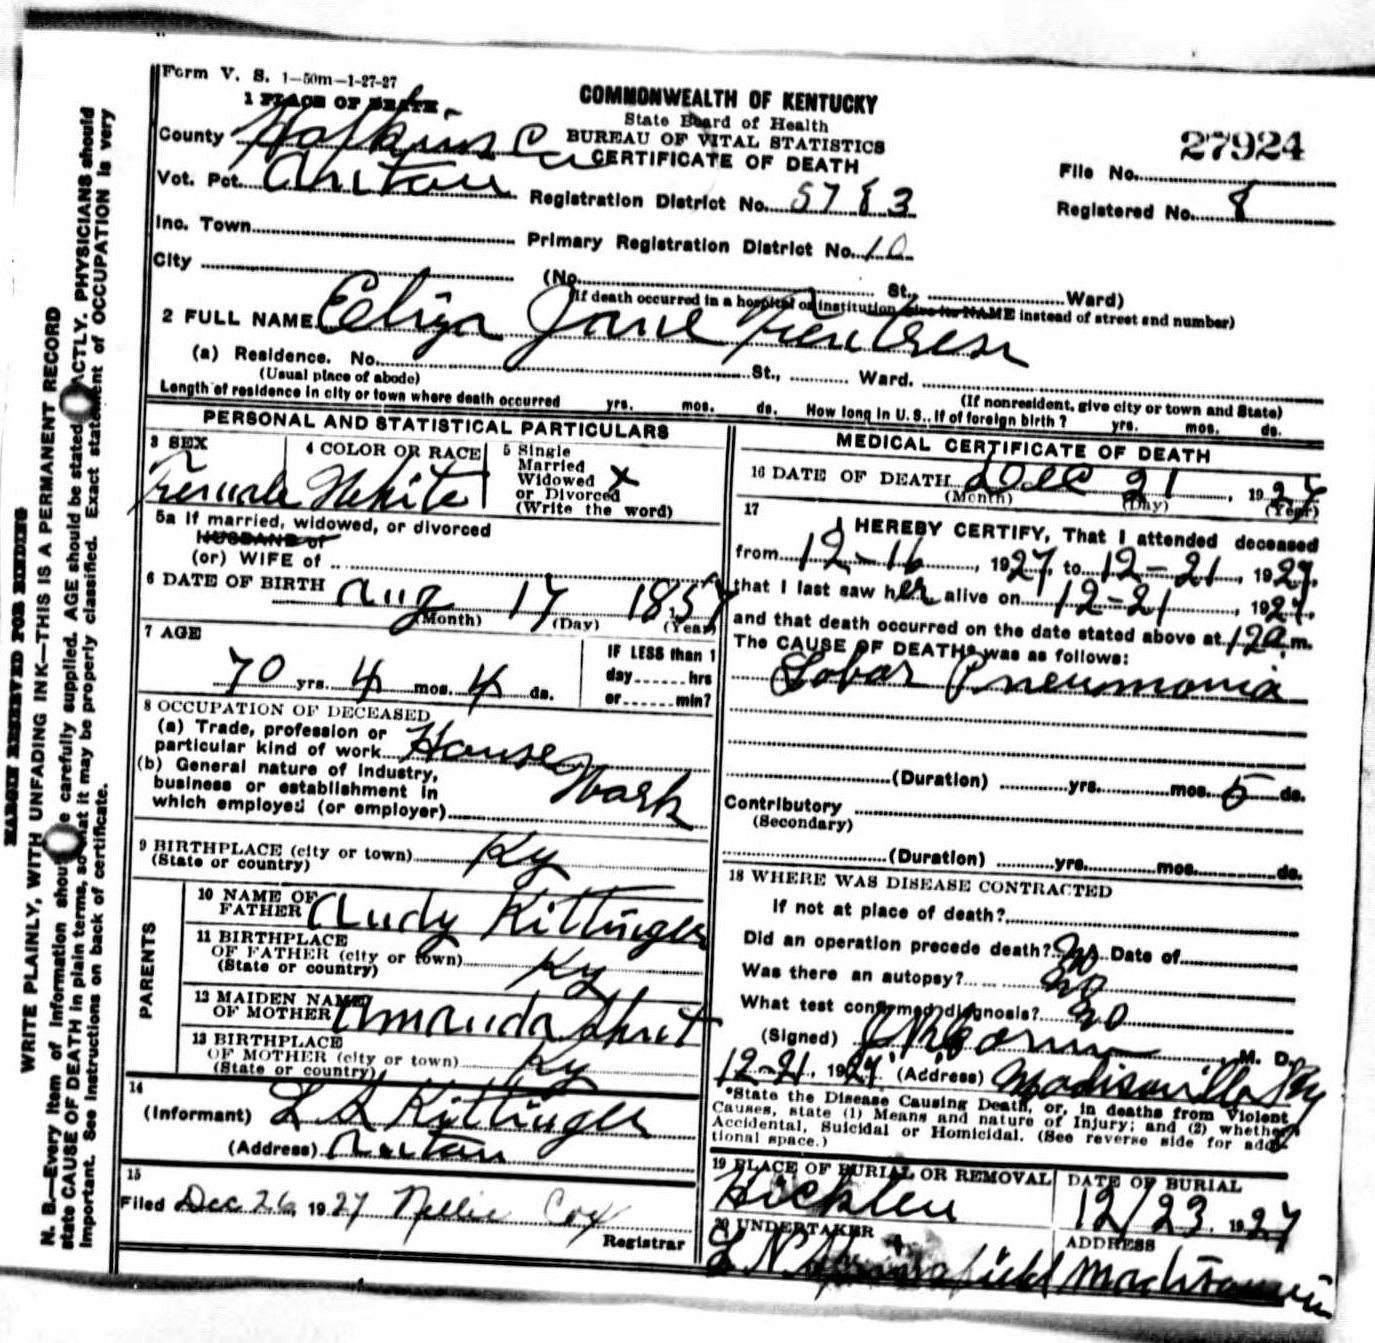 Form V. S. 1—50m—1-27-27
1 PLACE OF DEATH
COMMONWEALTH OF KENTUCKY
State Board of Health
BUREAU OF VITAL STATISTICS
CERTIFICATE OF DEATH
27924
File No.
Registered No. 8
County Hopkins Co
Vot. Pct. Anton Registration District No. 5783
Inc. Town Primary Registration District No. 10
City (No. St., Ward)
(If death occurred in a hospital or institution give its NAME instead of street and number)
2 FULL NAME Eliza Jane Fentress
(a) Residence. No. St., Ward.
(Usual place of abode) (If nonresident, give city or town and State)
Length of residence in city or town where death occurred yrs. mos. ds. How long in U. S., if of foreign birth? yrs. mos. ds.
PERSONAL AND STATISTICAL PARTICULARS
3 SEX 4 COLOR OR RACE 5 Single
Married
Widowed X
or Divorced
(Write the word)
Female White
5a If married, widowed, or divorced
HUSBAND of
(or) WIFE of
6 DATE OF BIRTH Aug 17 1857
(Month) (Day) (Year)
7 AGE
70 yrs. 4 mos. 4 ds.
IF LESS than 1
day hrs
or min?
8 OCCUPATION OF DECEASED
(a) Trade, profession or
particular kind of work House Work
(b) General nature of industry,
business or establishment in
which employed (or employer)
9 BIRTHPLACE (city or town) Ky
(State or country)
PARENTS
10 NAME OF
FATHER Andy Kittinger
11 BIRTHPLACE
OF FATHER (city or town) Ky
(State or country)
12 MAIDEN NAME
OF MOTHER Amanda
13 BIRTHPLACE
OF MOTHER (city or town) Ky
(State or country)
14
(Informant) L L Kittinger
(Address) Anton
15
Filed Dec 26, 1927 Nellie Cox
Registrar
MEDICAL CERTIFICATE OF DEATH
16 DATE OF DEATH Dec 21, 1927
(Month) (Day) (Year)
17
I HEREBY CERTIFY, That I attended deceased
from 12-16, 1927, to 12-21, 1927,
that I last saw her alive on 12-21, 1927,
and that death occurred on the date stated above at 12a m.
The CAUSE OF DEATH* was as follows:
Lobar Pneumonia
(Duration) yrs. mos. 5 ds.
Contributory
(Secondary)
(Duration) yrs. mos. ds.
18 WHERE WAS DISEASE CONTRACTED
If not at place of death?
Did an operation precede death? No Date of
Was there an autopsy? No
What test confirmed diagnosis? No
(Signed) M. D.
12-21, 1927. (Address) Madisonville Ky
*State the Disease Causing Death, or, in deaths from Violent
Causes, state (1) Means and nature of Injury; and (2) whether
Accidental, Suicidal or Homicidal. (See reverse side for addi-
tional space.)
19 PLACE OF BURIAL OR REMOVAL DATE OF BURIAL
Hicklen 12/23. 1927
20 UNDERTAKER ADDRESS
L N Springfield
MARGIN RESERVED FOR BINDING
WRITE PLAINLY, WITH UNFADING INK—THIS IS A PERMANENT RECORD
N. B.—Every item of information should be carefully supplied. AGE should be stated EXACTLY. PHYSICIANS should
state CAUSE OF DEATH in plain terms, so that it may be properly classified. Exact statement of OCCUPATION is very
important. See instructions on back of certificate.